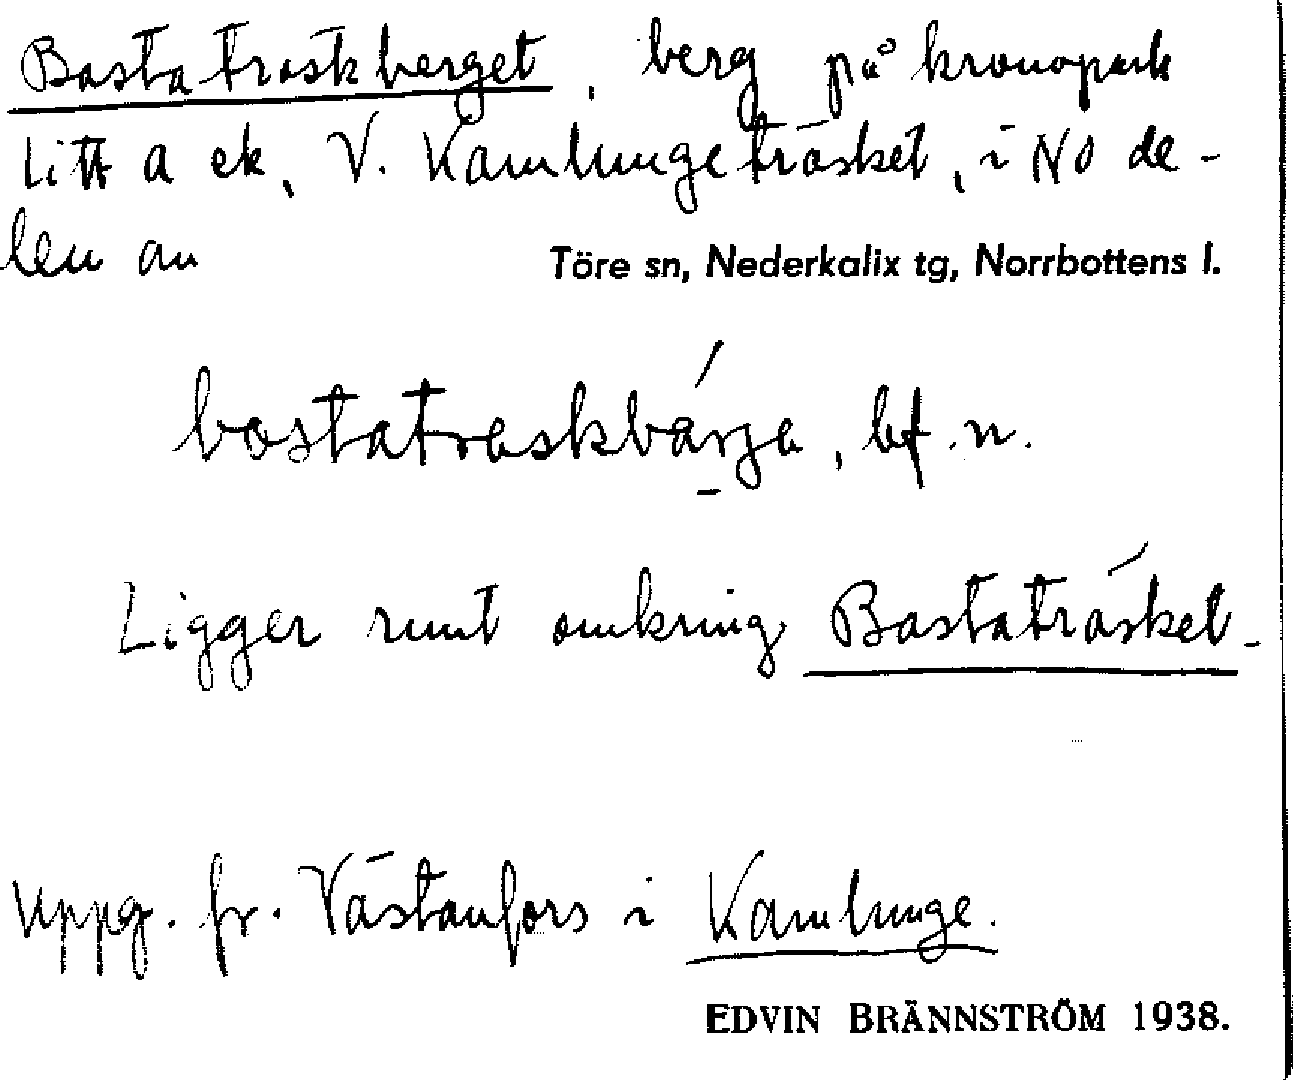 Bastaträskberget, berg på kronopark
Litt a ek, V. Kamlungeträsket, i NO de-
len av
Töre sn, Nederkalix tg, Norrbottens l.
bastatraskbárja, bf. n.
Ligger runt omkring Bastaträsket.
Uppg. fr. Västanfors i Kamlunge.
EDVIN BRÄNNSTRÖM 1938.